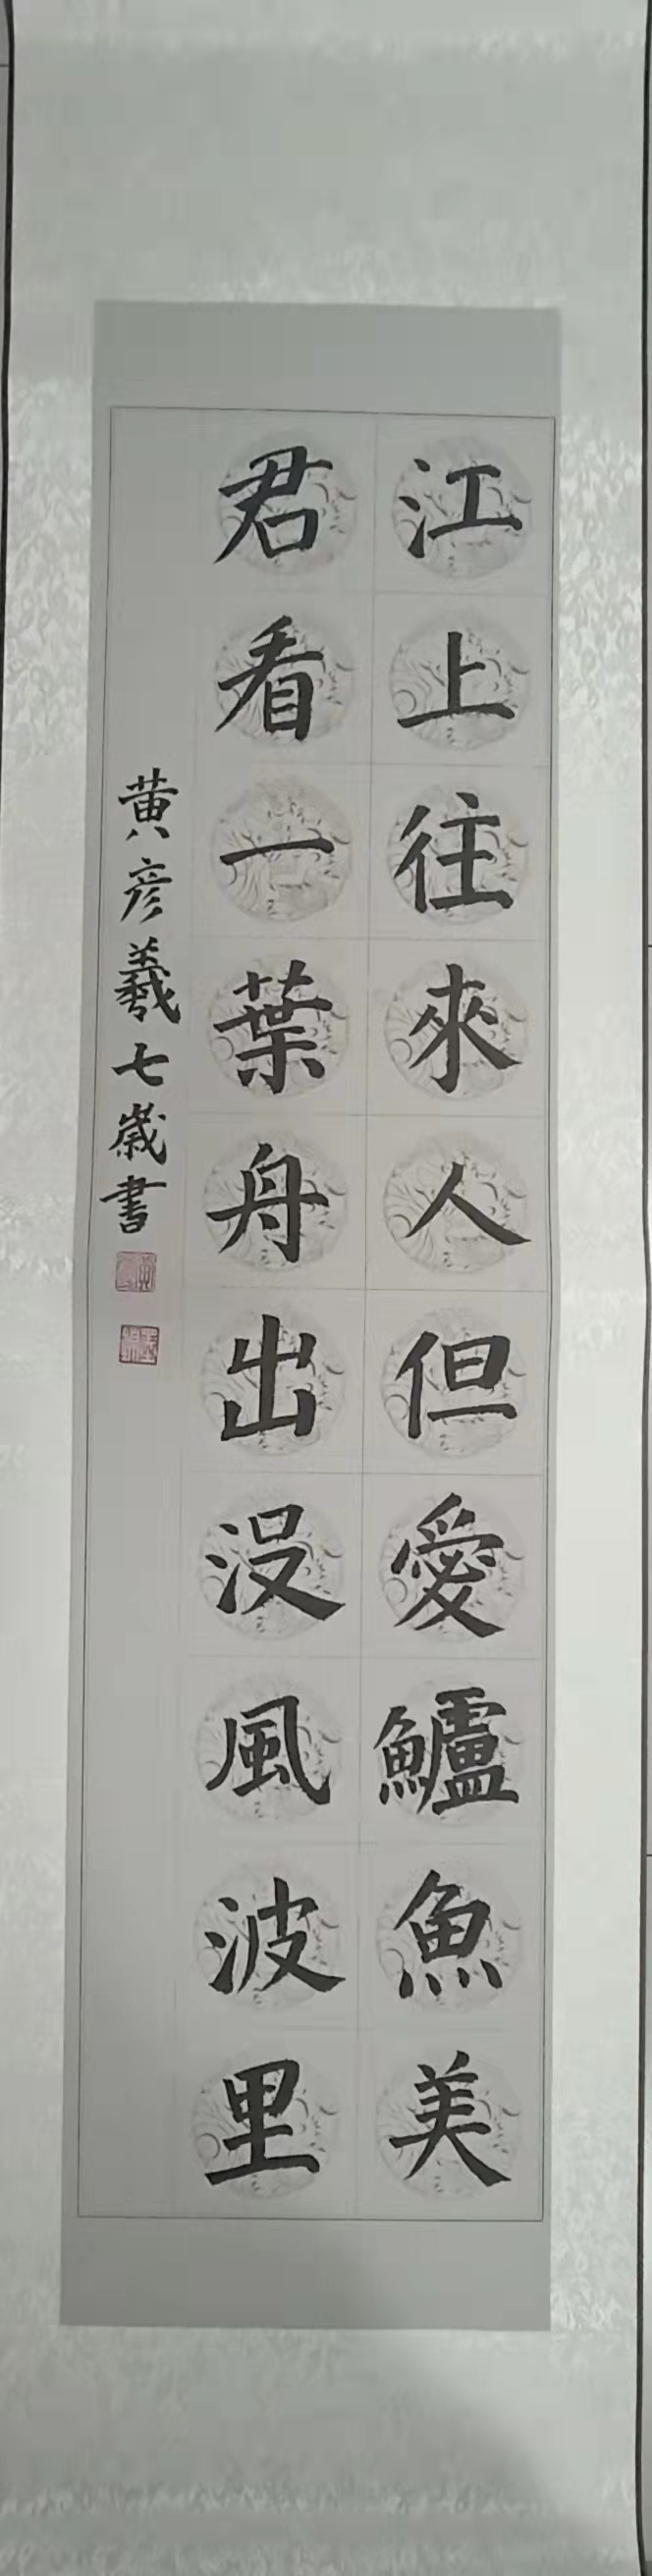 江上往來人但愛鱸魚美
君看一葉舟出没風波里
黄彦羲七歲書